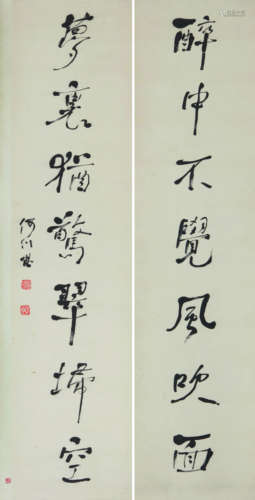 醉中不覺風吹面
夢裏猶驚翠掃空